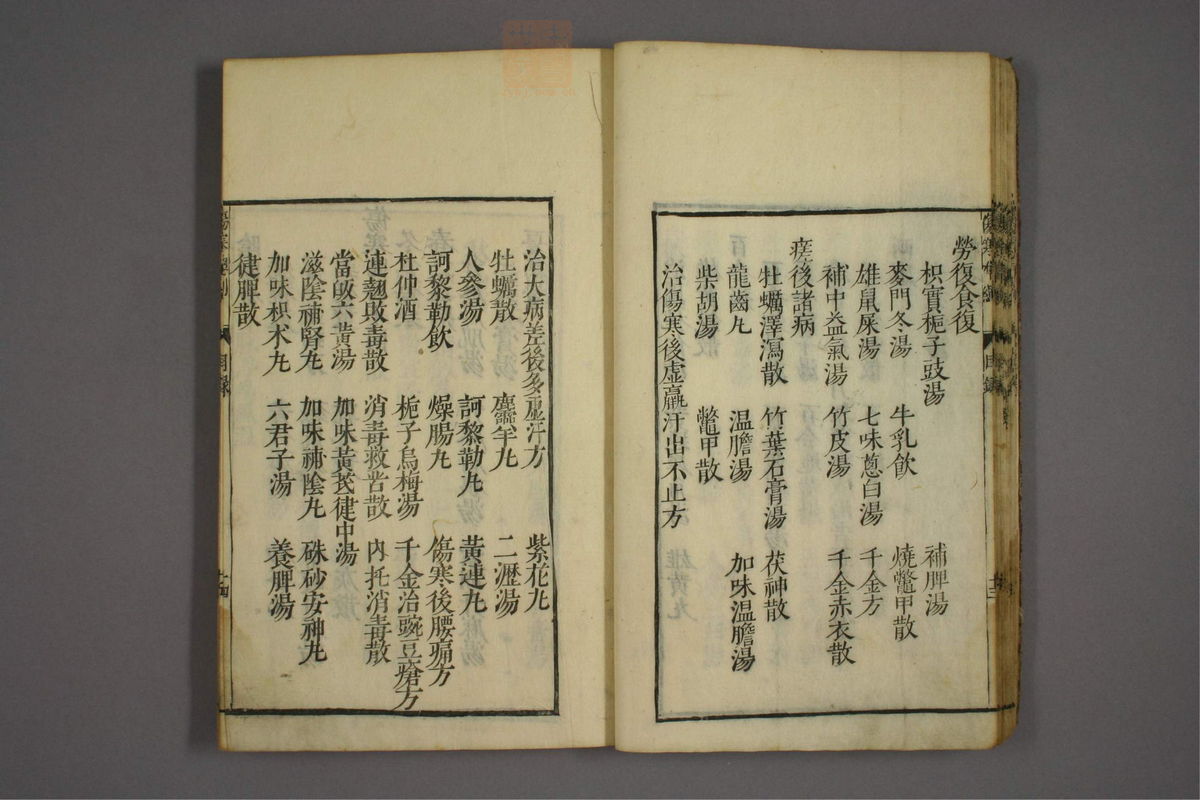 勞復食復
枳實梔子豉湯 補脾湯
麥門冬湯 牛乳飲 燒鼈甲散
雄鼠屎湯 七味蔥白湯 千金方
補中益氣湯 竹皮湯 千金赤衣散
瘥後諸病
牡蠣澤瀉散 竹葉石膏湯 茯神散
龍齒丸 温膽湯 加味温膽湯
柴胡湯 鼈甲散
治傷寒後虛羸汗出不止方
治大病差後多虛汗方 紫花丸
牡蠣散 麝香丸 二瀝湯
人參湯 訶黎勒丸 黃連丸
訶黎勒飲 燥腸丸 傷寒後腰痛方
杜仲酒 梔子烏梅湯 千金治豌豆瘡方
連翹敗毒散 消毒救苦散 內托消毒散
當歸六黃湯 加味黃芪健中湯
滋陰補腎丸 加味補陰丸 硃砂安神丸
加味枳朮丸 六君子湯 養脾湯
健脾散
目錄
十四